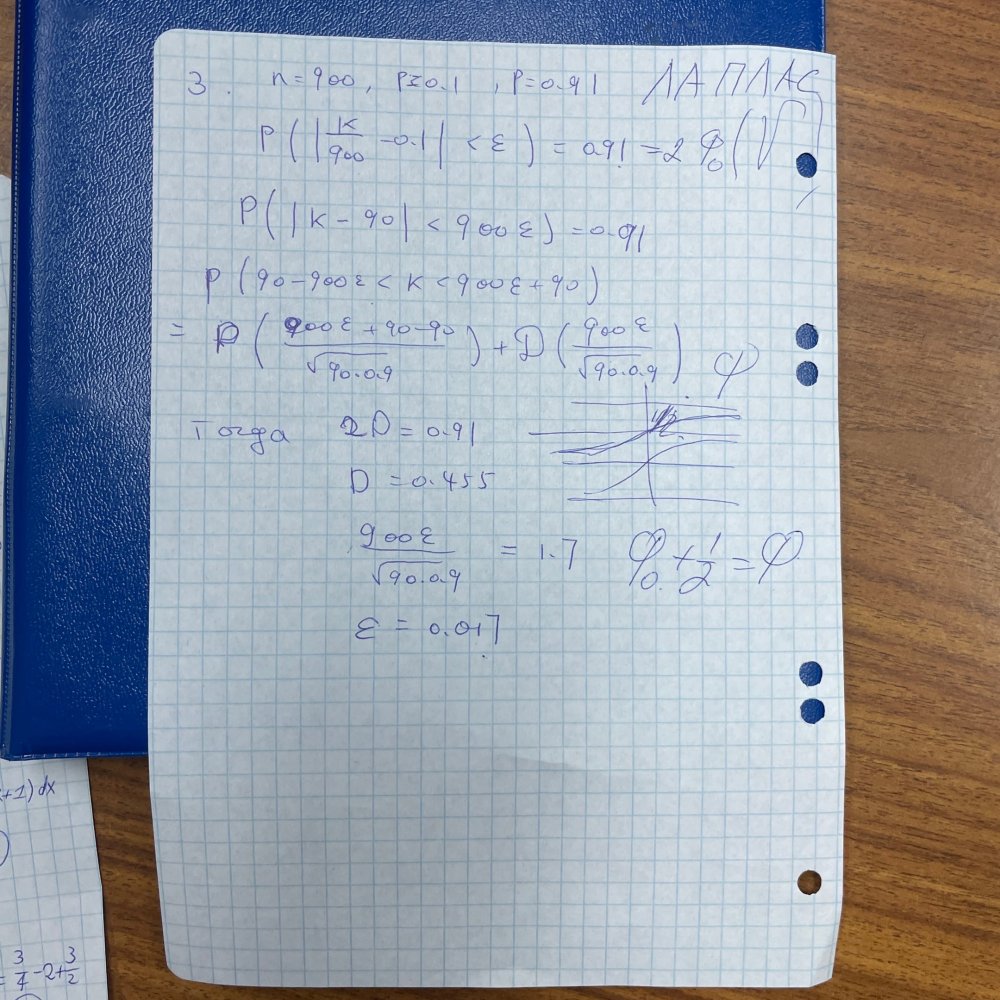 3. n=900, p=0.1, P=0.91 ЛАПЛАС
P(|K/900 -0.1| <ε) = 0.91 =2 Φ₀(√ )
P(|K-90| < 900ε) =0.91
P(90-900ε < K < 900ε+90)
= D(900ε+90-90/√90.0.9) + D(900ε/√90.0.9). φ
Тогда 2D=0.91
D =0.455
900ε/√90.0.9 = 1.7 φ₀ + 1/2 = φ
ε = 0.017
+1)dx
= 3/4 -2+ 3/2